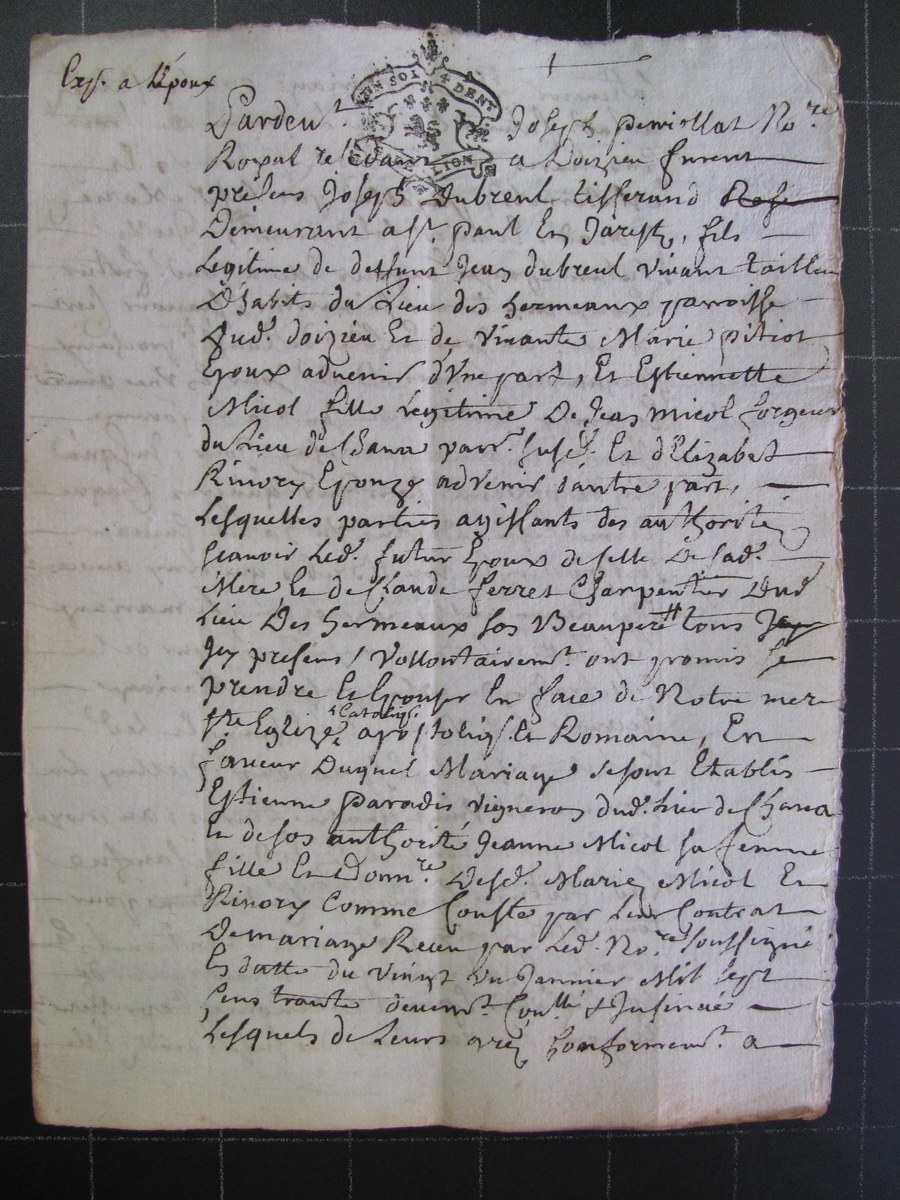 Exp. a l'époux
UN SOL 4 DENI
LION
Pardevt. Joseph perriollat Nore.
Royal residant a Doizieu furent
presens Joseph Dubreul tisserand
Demeurant a St. paul En Jarest, fils
Legitime de deffunt Jean dubreul vivant tailleur
D'habits du Lieu des hermeaux parroisse
Dud. doizieu Et de vivante Marie pitiot
Epoux advenir d'Vne part, Et Estiennette
Micol fille Legitime De Jean micol forgeur
du Lieu de Chava parr. susd. Et d'Elizabet
Rivory Epouze advenir d'autre part,
Lesquelles parties agissants des authorité
scavoir Led. futur Epoux de celle De sad.
Mere Et de Claude ferret Charpentier Dud.
Lieu Des hermeaux son Beaupere tous
Icy presens / Vollontairemt. ont promis se
prendre Et Epouser En face de Notre mere
Ste. Eglize Catoliq. apostoliq. Et Romaine, En
faveur Duquel Mariage se sont Etablis
Estienne paradis vigneron dud. Lieu de Chava
Et de son authorité Jeanne Micol sa femme
fille Et Donnre. Desd. Mariez Micol Et
Rivory Comme Conste par Leur Contrat
De mariage Receu par Led. Nore. soussigné
En datte du vingt Vn Janvier Mil sept
Cens trante deuemt. Conllé & Insinué
Lesquels de Leurs gréz Conformemt. a